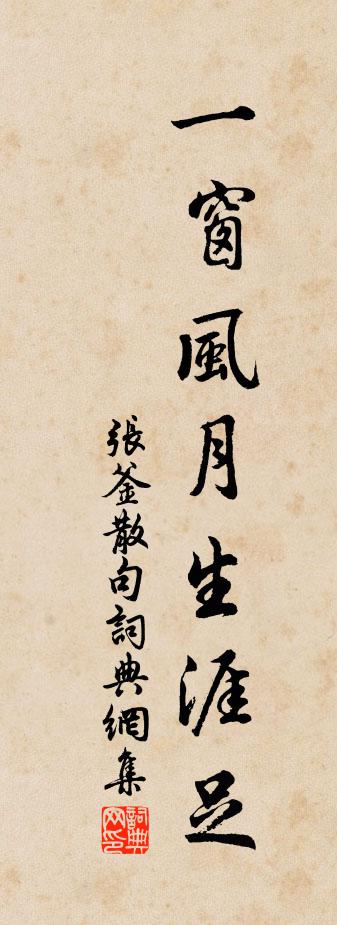 一窗風月生涯足
張釜散句詞典網集
詞典网印